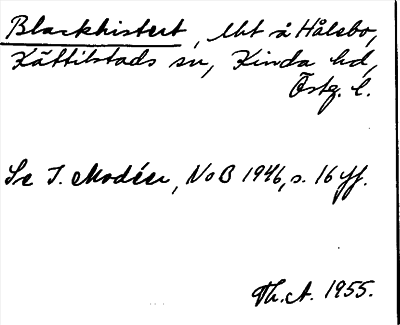 Blackhistert, lht å Hålsbo,
Kättilstads sn, Kinda hd,
Östg. l.
Se I. Modéer, NoB 1946, s. 16 ff.
Th.A. 1955.